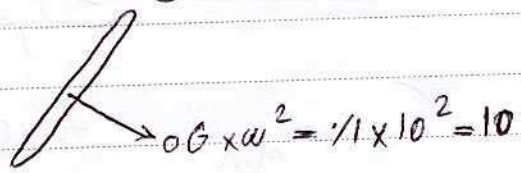 OG × ω² = ٠/1 × 10² = 10